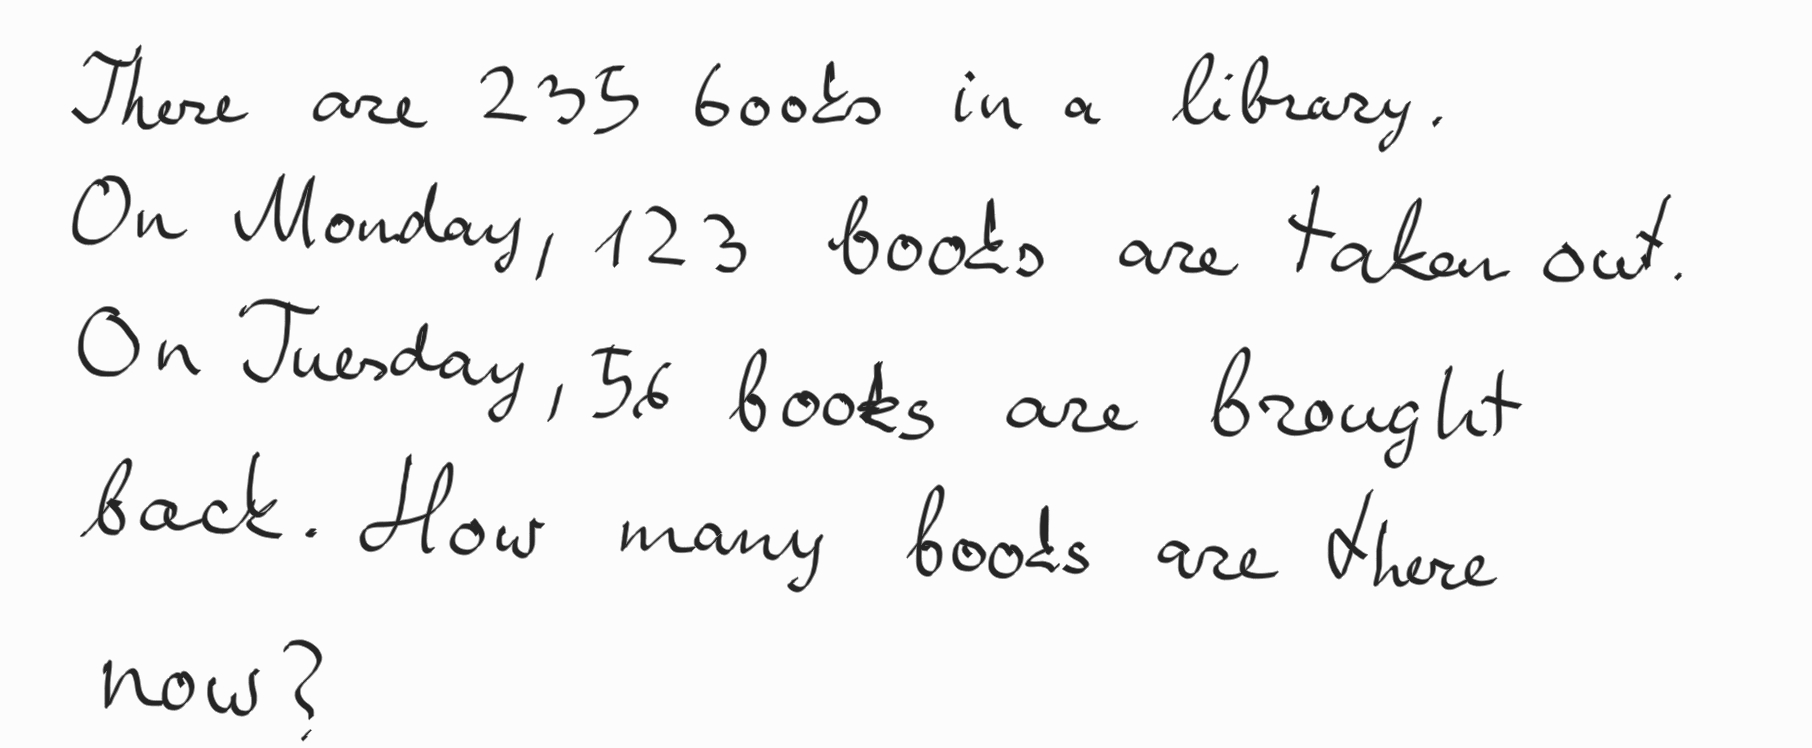 There are 235 books in a library.
On Monday, 123 books are taken out.
On Tuesday, 56 books are brought
back. How many books are there
now?